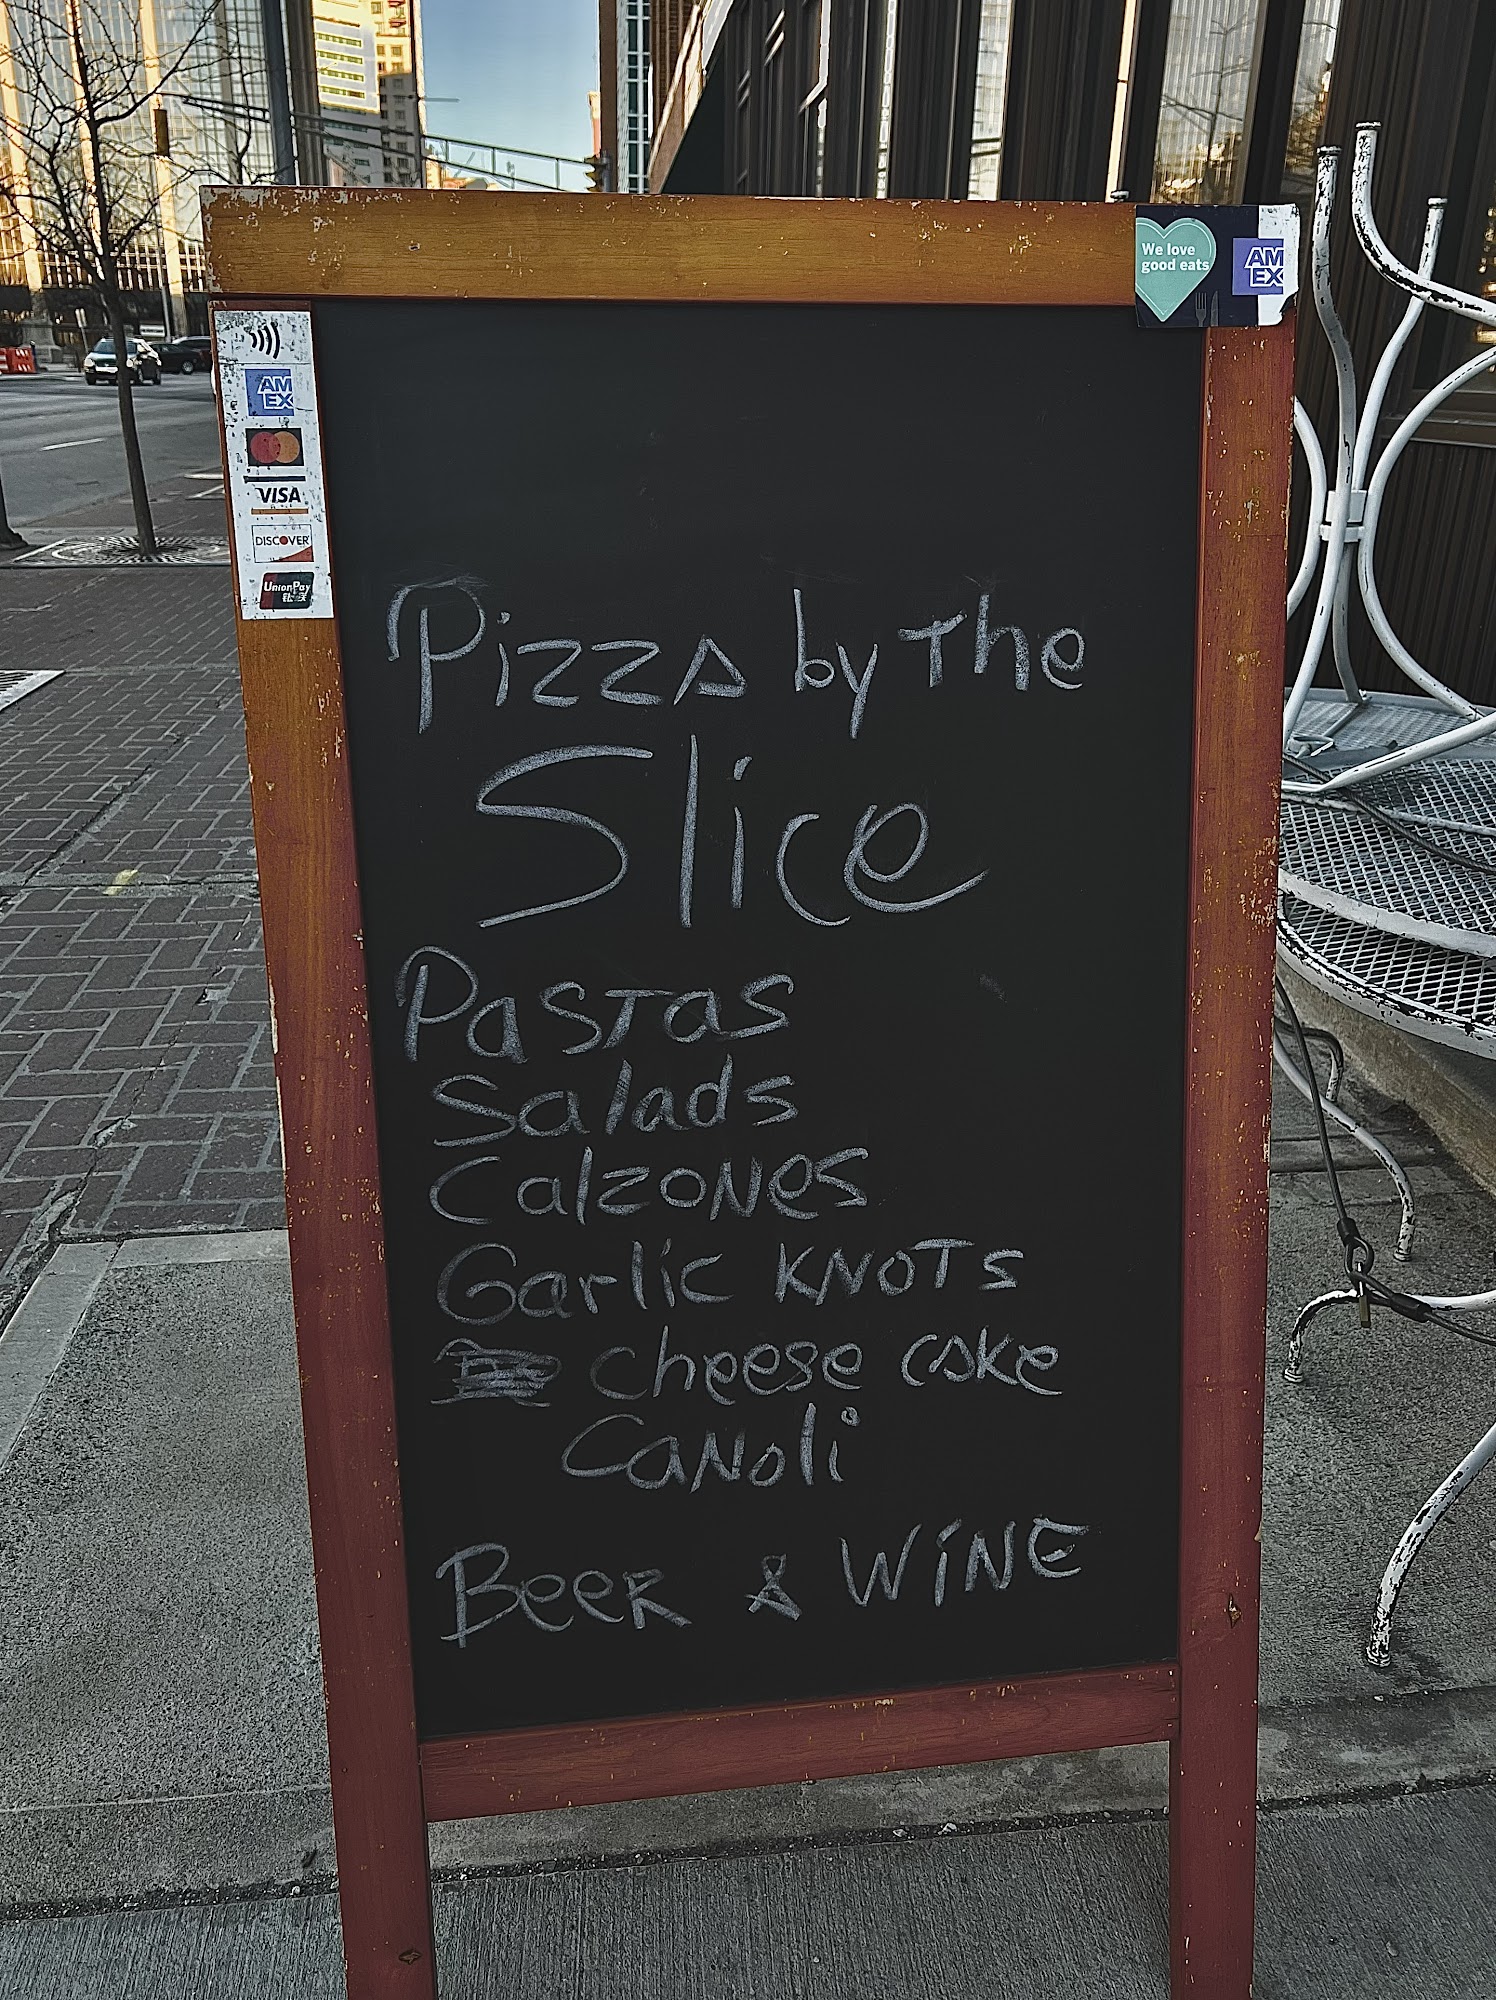 We love
good eats
AM
EX
AM
EX
VISA
DISCOVER
UnionPay
银联
Pizza by The
Slice
Pastas
Salads
Calzones
Garlic KNOTS
cheese cake
CaNoli
BeeR & WiNE